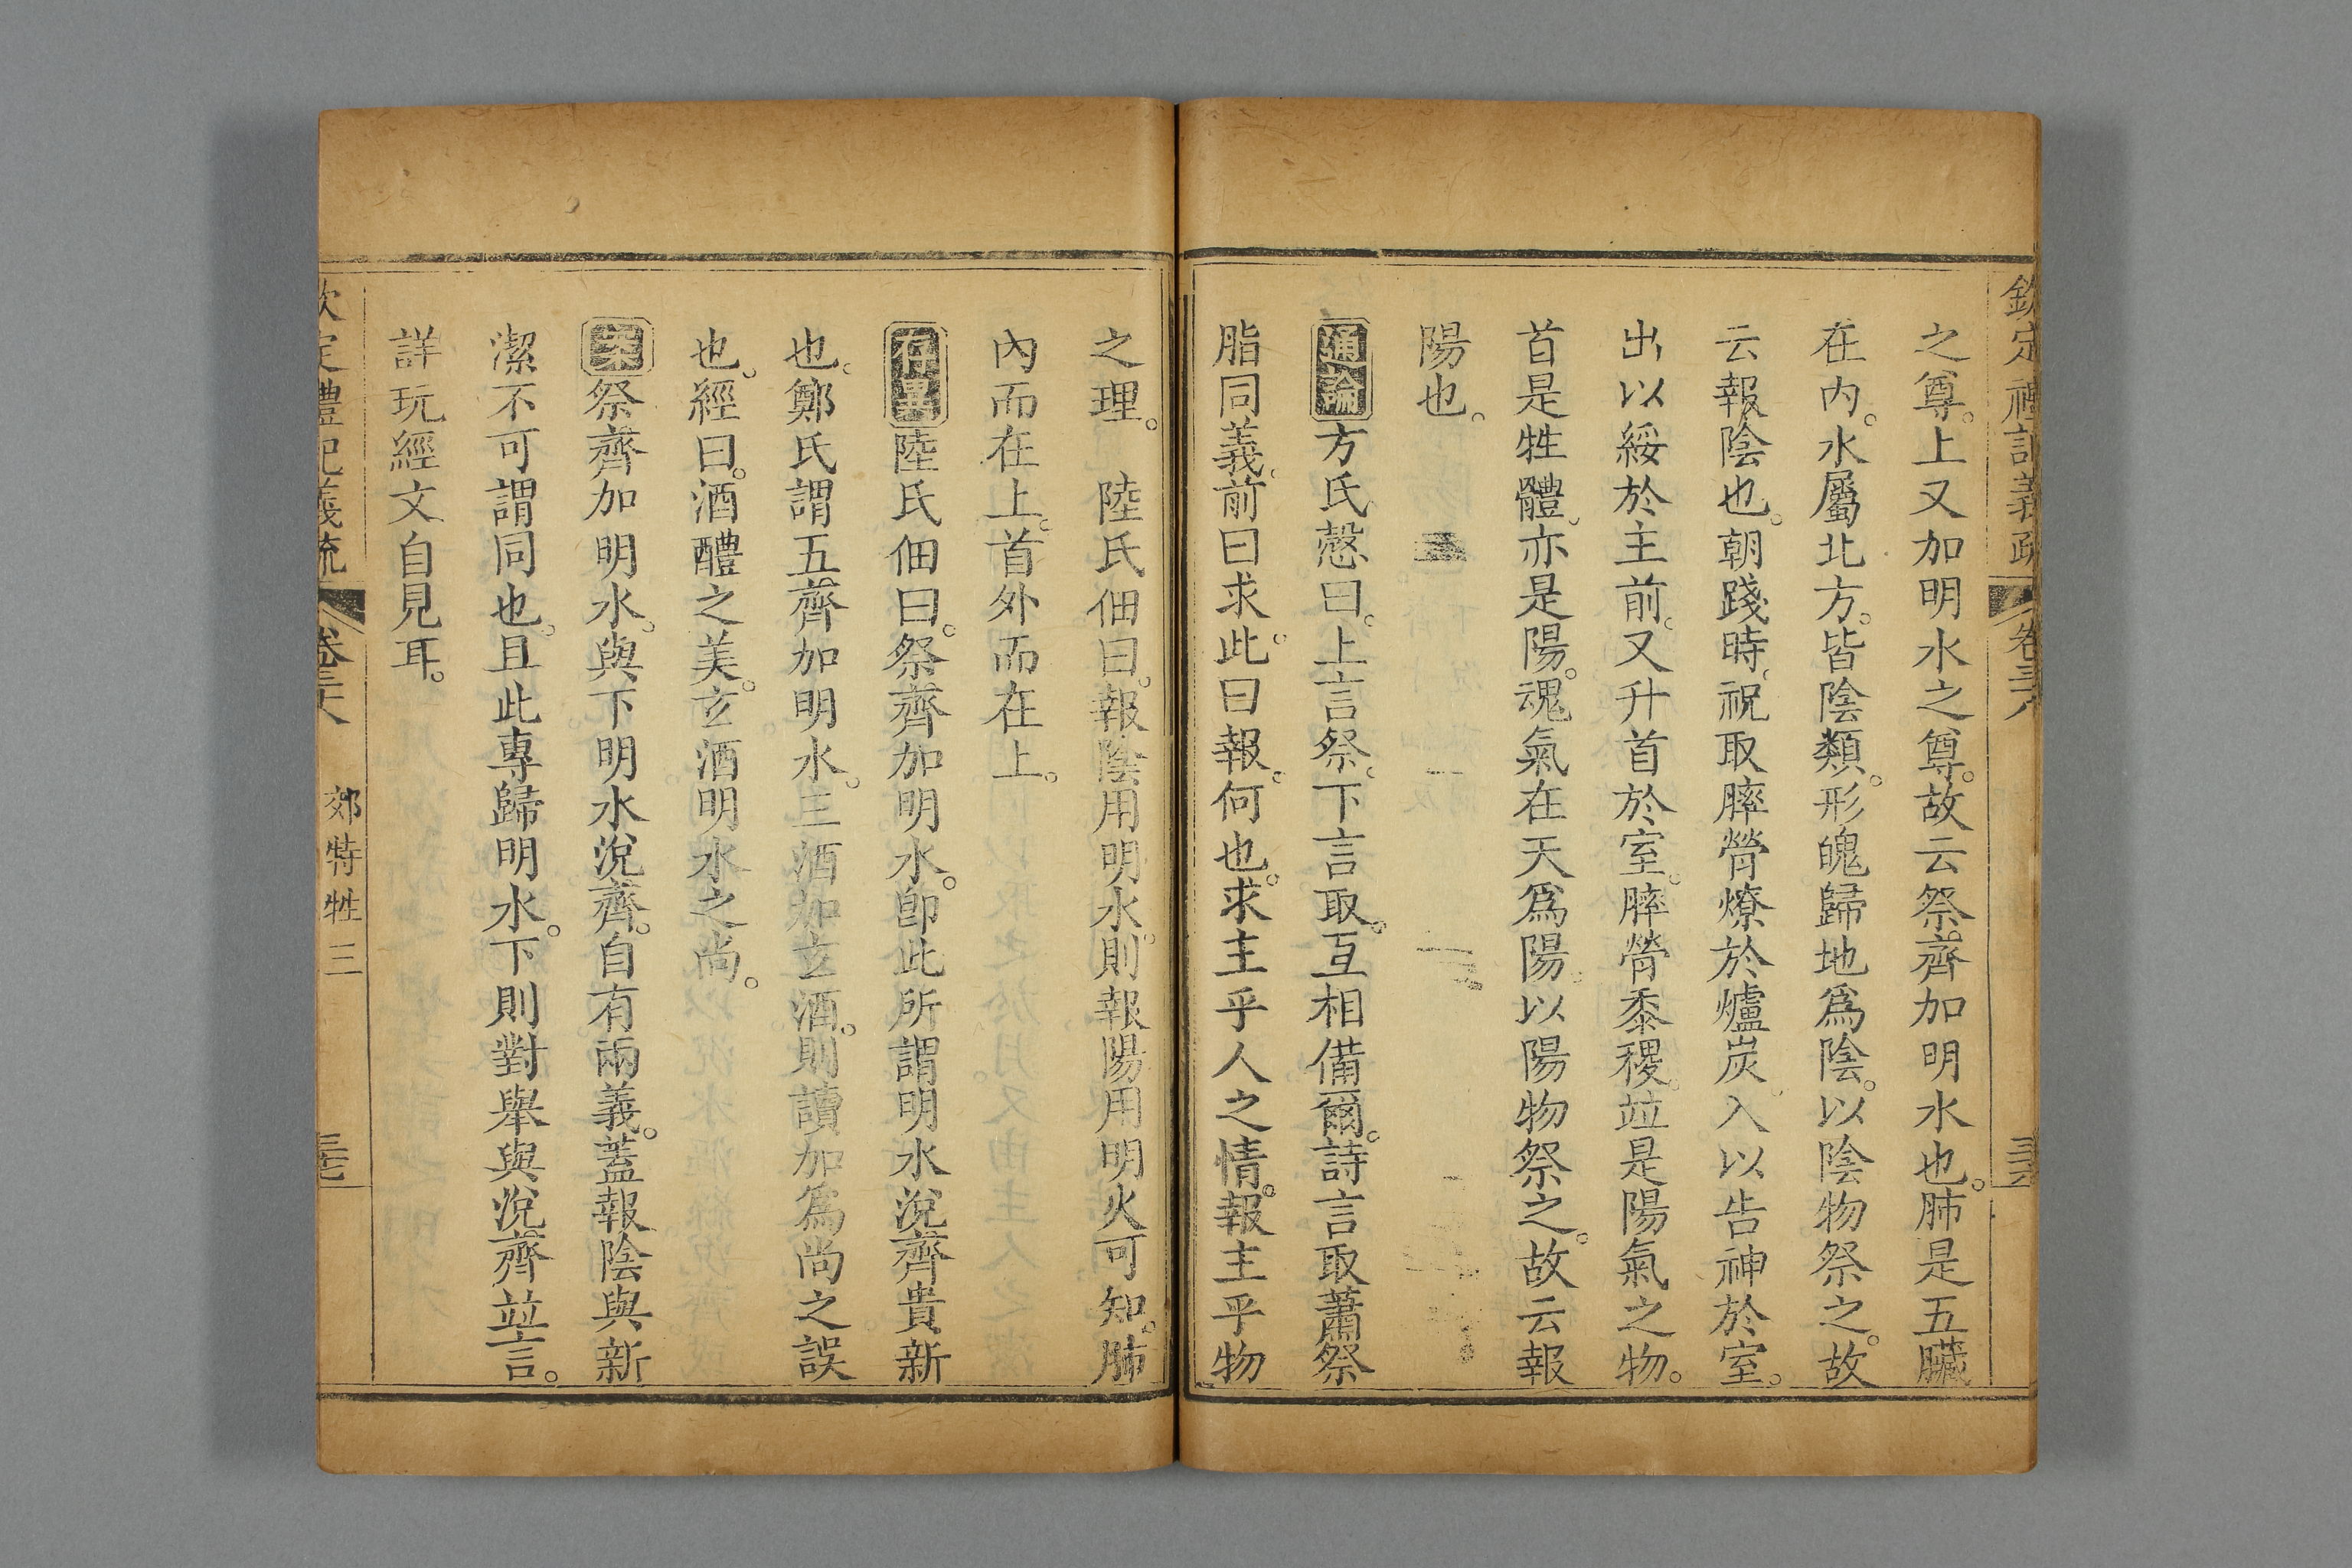 欽定禮記義疏 卷三十八 三六
之尊。上又加明水之尊。故云祭齊加明水也。肺是五臟
在内。水屬北方。皆陰類。形魄歸地爲陰。以陰物祭之。故
云報陰也。朝踐時。祝取膟膋燎於爐炭。入以告神於室。
出以綏於主前。又升首於室。膟膋黍稷。竝是陽氣之物。
首是牲體。亦是陽。魂氣在天爲陽。以陽物祭之。故云報
陽也。
通論方氏慤曰。上言祭。下言取。互相備爾。詩言取蕭祭
脂同義。前曰求。此曰報。何也。求主乎人之情。報主乎物
之理。　陸氏佃曰。報陰用明水。則報陽用明火可知。肺
內而在上。首外而在上。
存異陸氏佃曰。祭齊加明水。卽此所謂明水涗齊貴新
也。鄭氏謂五齊加明水。三酒加玄酒。則讀加爲尚之誤
也。經曰。酒醴之美。玄酒明水之尚。
案祭齊加明水。與下明水涗齊。自有兩義。蓋報陰與新
潔不可謂同也。且此專歸明水。下則對舉與涗齊竝言。
詳玩經文自見耳。
欽定禮記義疏 卷三十八 郊特牲三 三七